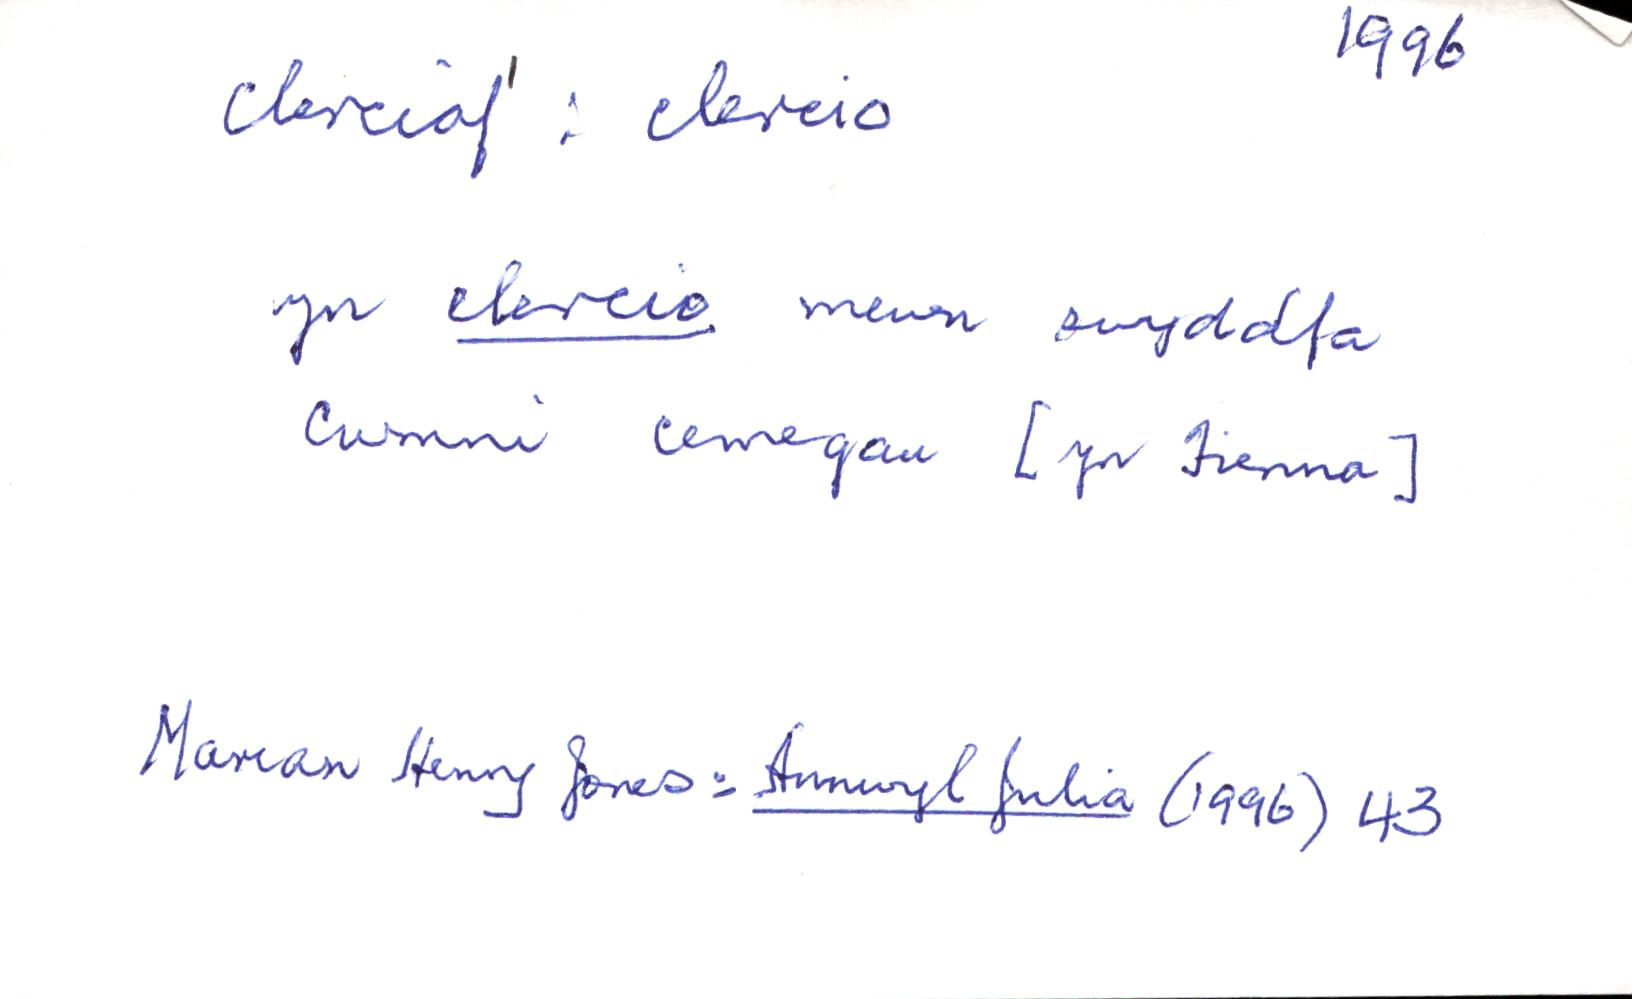 1996
clerciaf¹ : clercio
yn clercio mewn swyddfa
cwmni cemegau [yn Fienna]
Marian Henry Jones : Annwyl Julia (1996) 43